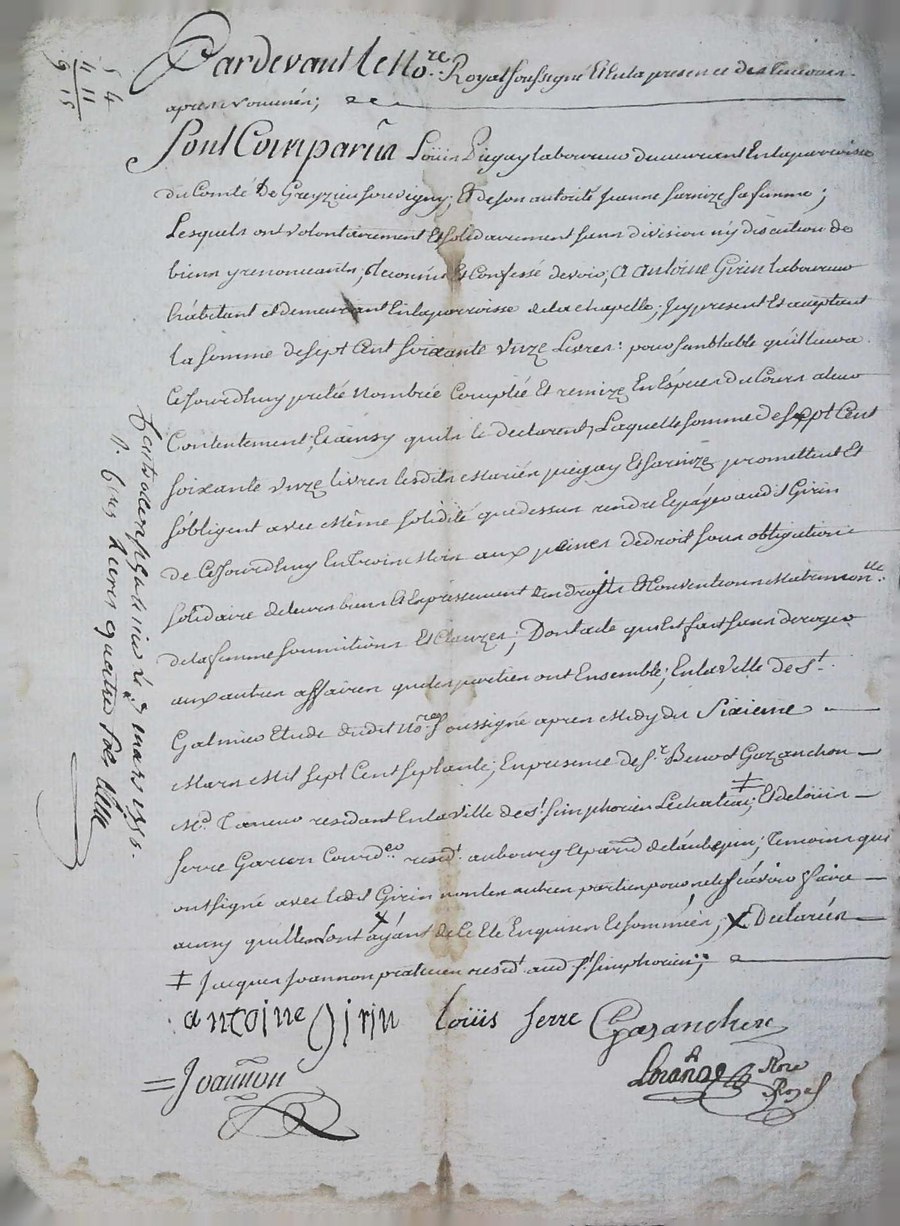 Pardevant le No.re Royal soussigné Et En la presence des temoins
apres nommés;
Sont Comparus Loüis Piegay laboureur demeurant En la parroisse
du Comté De Greyzieu souvigny; Et de son autorité Jeanne Sarnize sa femme;
Lesquels ont volontairement Et solidairement sans division ny discution de
biens y renoncants; reconnus Et Confessé devoir, a antoine Girin laboureur
habitant et demeurant En la parroisse de la chapelle; Jcy present Et acceptant
la somme de sept Cent soixante Unze Livres: pour semblable qu'il leur a
Cejourdhuy pretée Nombrée Comptée Et remize En Espèces du Cours a leur
Contentement; Et ainsy qu'ils le declarent, Laquelle somme de sept Cent
soixante Unze livres lesdits Mariés piégay Et Sarnize promettent Et
s'obligent avec Même solidité que dessus rendre Et payer audit Girin
de Cejourdhuy En trois Mois aux peines de droit sous obligation
solidaire de leurs biens Et Expressement des droits Et Conventions Matrimon.lle
de la femme soumitions Et Clauzes; Dont acte qu'est fait sans deroger
aux autres affaires que les parties ont Ensemble; En la Ville de S.t
Galmier Etude dudit No.re soussigné apres Midy du Sixieme
Mars Mil sept Cent septante; En presence de s.r Benoit Gazanchon
M.d Taneur residant En la ville de s.t simphorien Lechateau; ‡ Et de loüis
Serre Garcon Cord.er resid.t au bourg Et parr.se de l'aubepin; temoins qui
ont signé avec ledit Girin non les autres parties pour ne le scavoir faire
ainsy quils ont X ayant de Ce Eté Enquises Et sommées; X Declarés
‡ Jacques Joannon praticien resid.t aud s.t simphorien;
antoine Girin Loüis Serre Gazanchon
Joannon
Lorange No.re Royal
5 4
4 11
9 15
a s.t Galmier Le 7 mars 1770.
R. livres quatre sols